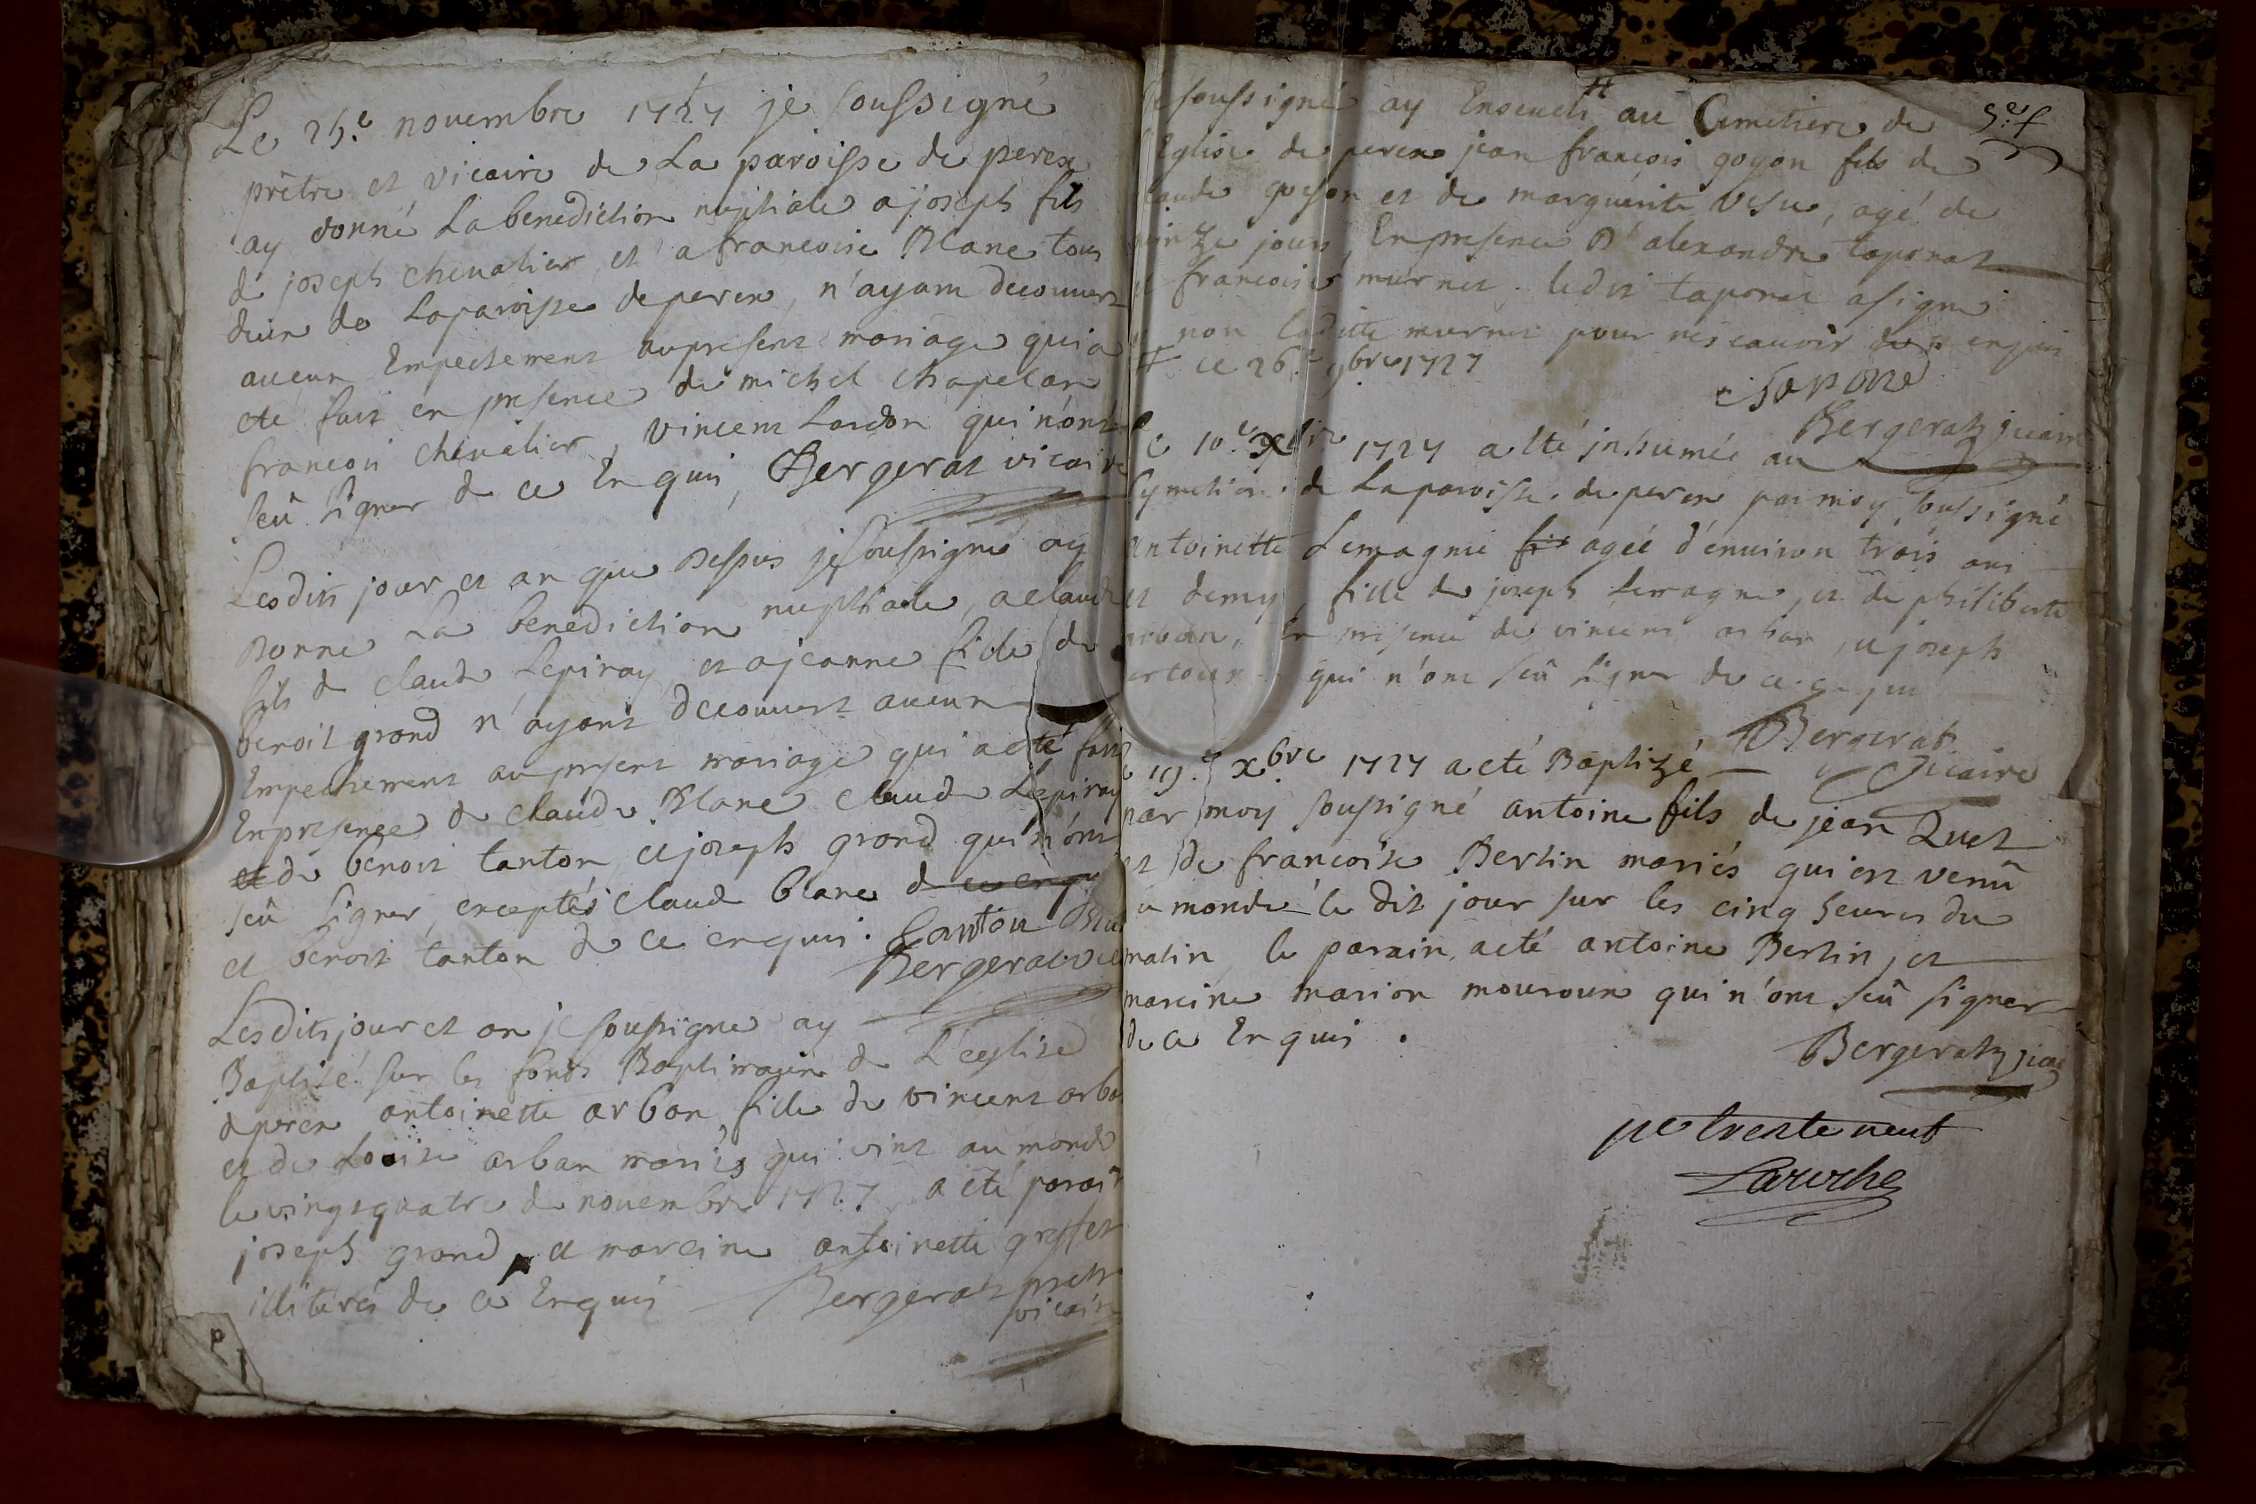 Le 25.e novembre 1727 je soussigné
prêtre et vicaire de La paroisse de perex
ay donné La benediction nuptiale a joseph fils
de joseph chevalier et a francoise Blanc tous
deux de Laparoisse de perex, n'ayant decouvert
aucun Empechement aupresent mariage qui a
eté fait en presence de michel chapelan
francois chevalier, vincent Lardon qui n'ont
seû signer de ce Enquis, Bergerat vicaire
Lesdits jour et an que Dessus je soussigné ay
Donné La benediction nuptiale, a claude
fils de claude Lepiray et a jeanne fille de
benoit grand n'ayant decouvert aucun
Empechement au present mariage qui a eté fait
Enpresence de claude Blanc claude Lepiray
et de benoit tanton et joseph grand qui n'ont
seû signer exceptés claude blanc de ce enquis
et benoit tanton de ce enquis. tantôn
Bergerat vic
Lesdits jour et an je soussigné ay
Baptisé sur les fonds Baptimaux de L'eglise
deperex antoinette arban fille de vincent arban
et de Louise arban mariés qui vint au monde
le vingtquatre de novembre 1727 a eté parain
joseph grand, et mareine antoinette
illiterés de ce Enquis Bergerat pretre
vicaire
je soussigné ay Enseveli # au Cimetiere de
l'Eglise de perex jean françois goyon fils de
claude goyon et de marguerite Vesu, agé de
quinze jours, En presence D'alexandre taponat
et francoise murnet. ledit taponat a signé
et non laditte murnet pour ne scauoir de ce enquis
# ce 26.e 9bre 1727
taponat
Bergerat vicaire
Le 10.e xbre 1727 a eté inhumée au
Cymetiere de Laparoisse de perex par moy soussigné
antoinette Lemagnie fil agée d'environ trois ans
et demy, fille de joseph Lemagnie, et de philiberte
arban, en presence de vincent arban, et joseph
qui n'ont seû signer de ce enquis
Bergerat
vicaire
Le 19.e xbre 1727 a eté Baptizé
par moy soussigné antoine fils de jean Quet
et de francoise Bertin mariés qui est venû
au monde le dit jour sur les cinq heures du
matin, le parain a eté antoine Bertin, et
mareine marion mouroux qui n'ont seû signer
de ce Enquis.
Bergerat vicaire
pe trente neuf
Laroche